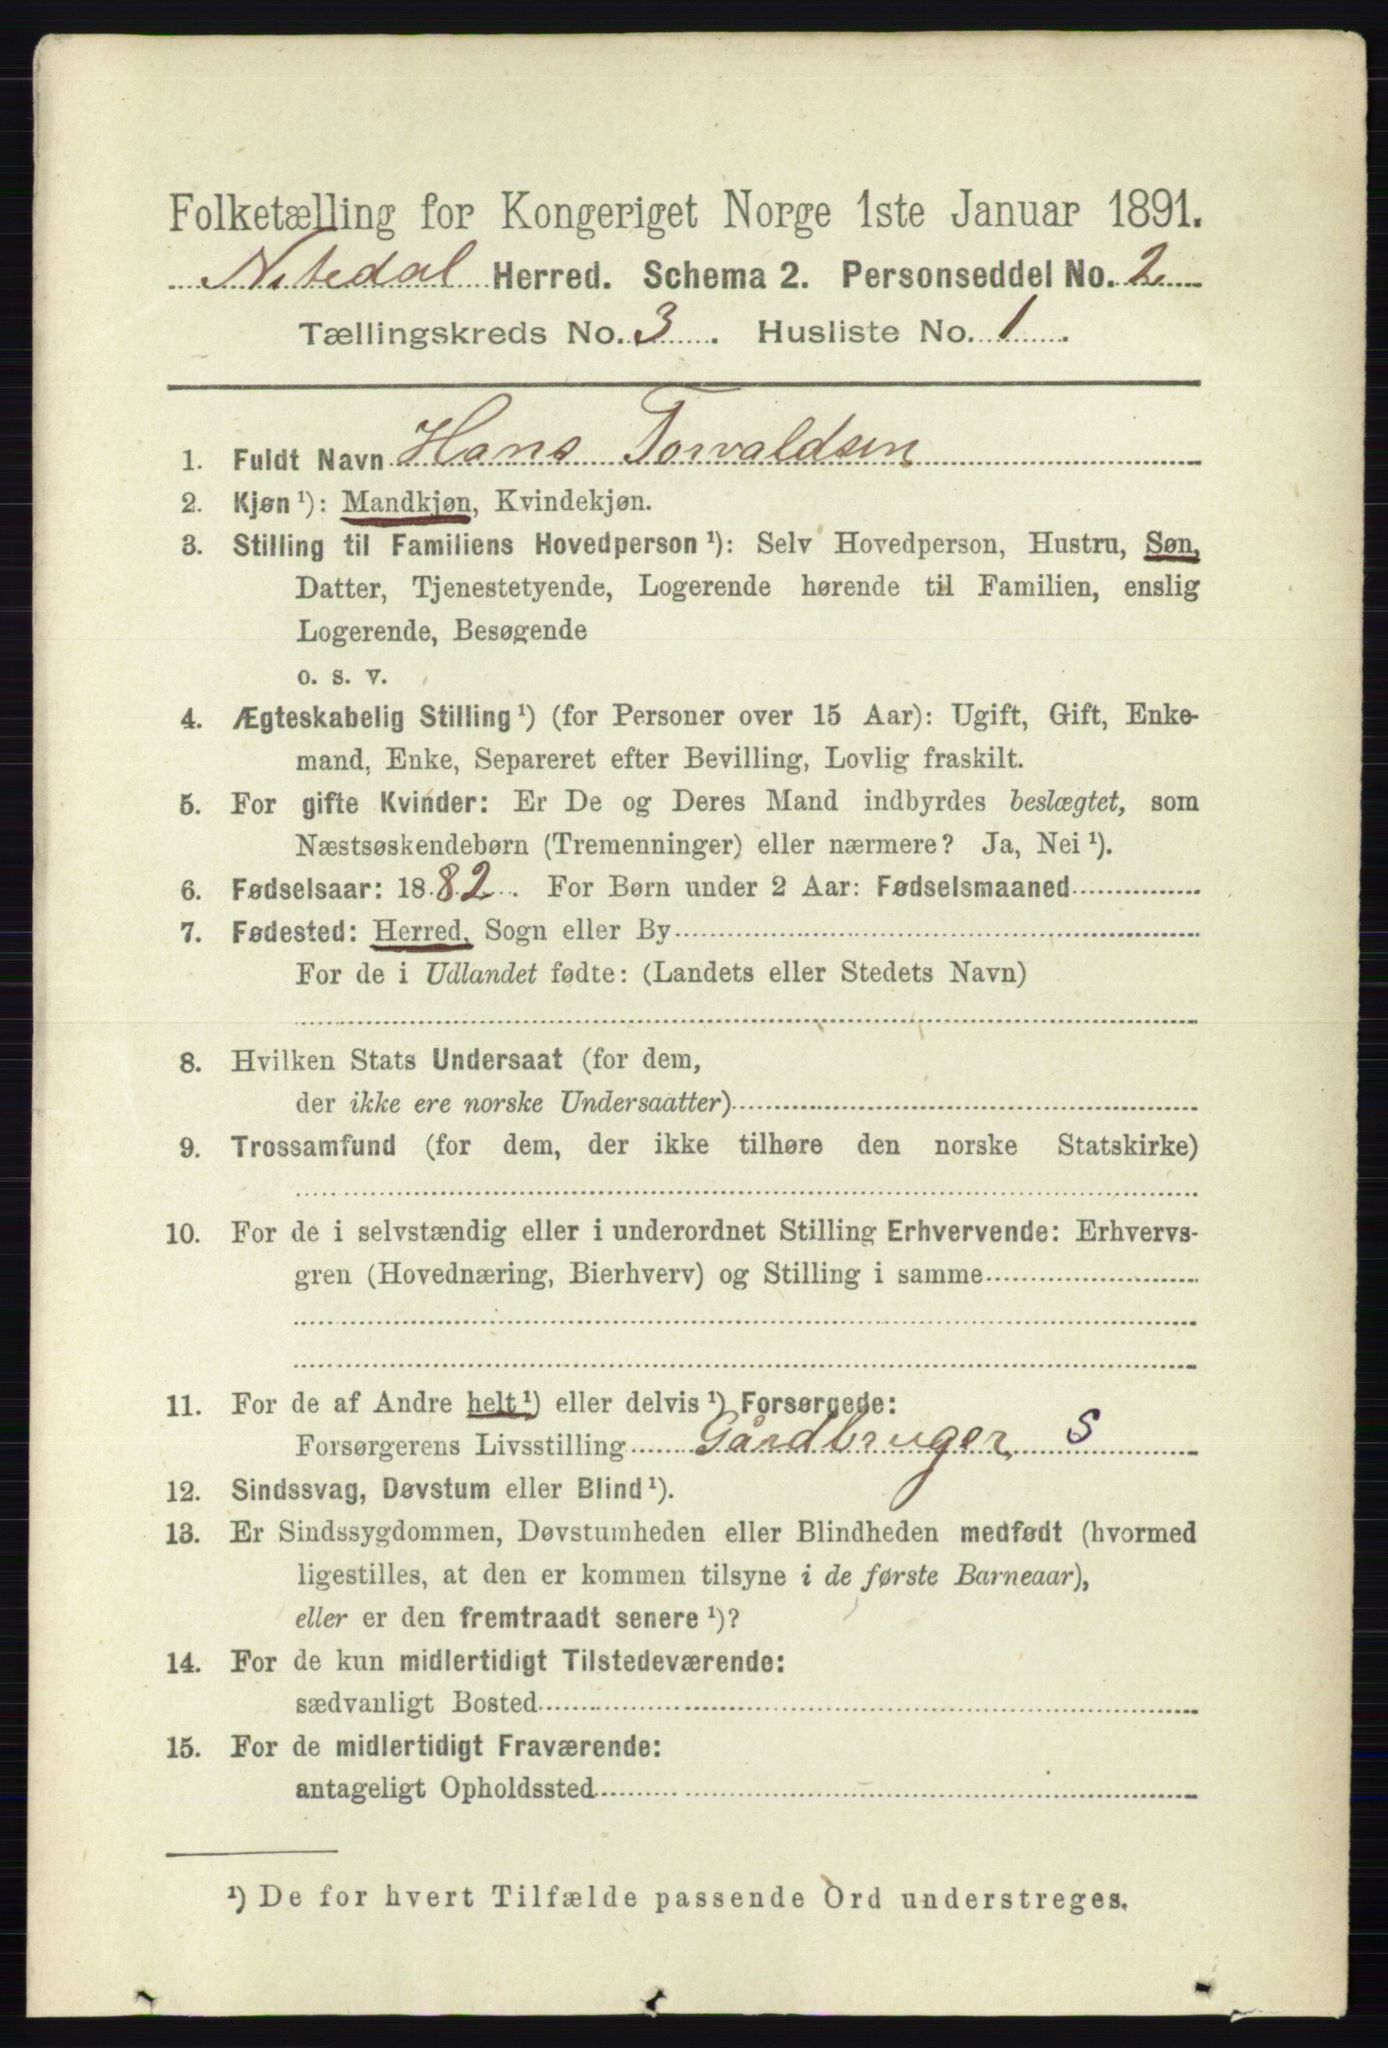 Folketælling for Kongeriget Norge 1ste Januar 1891.
Nitedal Herred. Schema 2. Personseddel No. 2
Tællingskreds No. 3. Husliste No. 1.
1. Fuldt Navn Hans Torvaldsen
2. Kjøn¹): Mandkjøn, Kvindekjøn.
3. Stilling til Familiens Hovedperson¹): Selv Hovedperson, Hustru, Søn,
Datter, Tjenestetyende, Logerende hørende til Familien, enslig
Logerende, Besøgende
o. s. v.
4. Ægteskabelig Stilling¹) (for Personer over 15 Aar): Ugift, Gift, Enke-
mand, Enke, Separeret efter Bevilling, Lovlig fraskilt.
5. For gifte Kvinder: Er De og Deres Mand indbyrdes beslægtet, som
Næstsøskendebørn (Tremenninger) eller nærmere? Ja, Nei¹).
6. Fødselsaar: 1882. For Børn under 2 Aar: Fødselsmaaned
7. Fødested: Herred, Sogn eller By
For de i Udlandet fødte: (Landets eller Stedets Navn)
8. Hvilken Stats Undersaat (for dem,
der ikke ere norske Undersaatter)
9. Trossamfund (for dem, der ikke tilhøre den norske Statskirke)
10. For de i selvstændig eller i underordnet Stilling Erhvervende: Erhvervs-
gren (Hovednæring, Bierhverv) og Stilling i samme
11. For de af Andre helt¹) eller delvis¹) Forsørgede:
Forsørgerens Livsstilling Gårdbruger S
12. Sindssvag, Døvstum eller Blind¹).
13. Er Sindssygdommen, Døvstumheden eller Blindheden medfødt (hvormed
ligestilles, at den er kommen tilsyne i de første Barneaar),
eller er den fremtraadt senere¹)?
14. For de kun midlertidigt Tilstedeværende:
sædvanligt Bosted
15. For de midlertidigt Fraværende:
antageligt Opholdssted
¹) De for hvert Tilfælde passende Ord understreges.